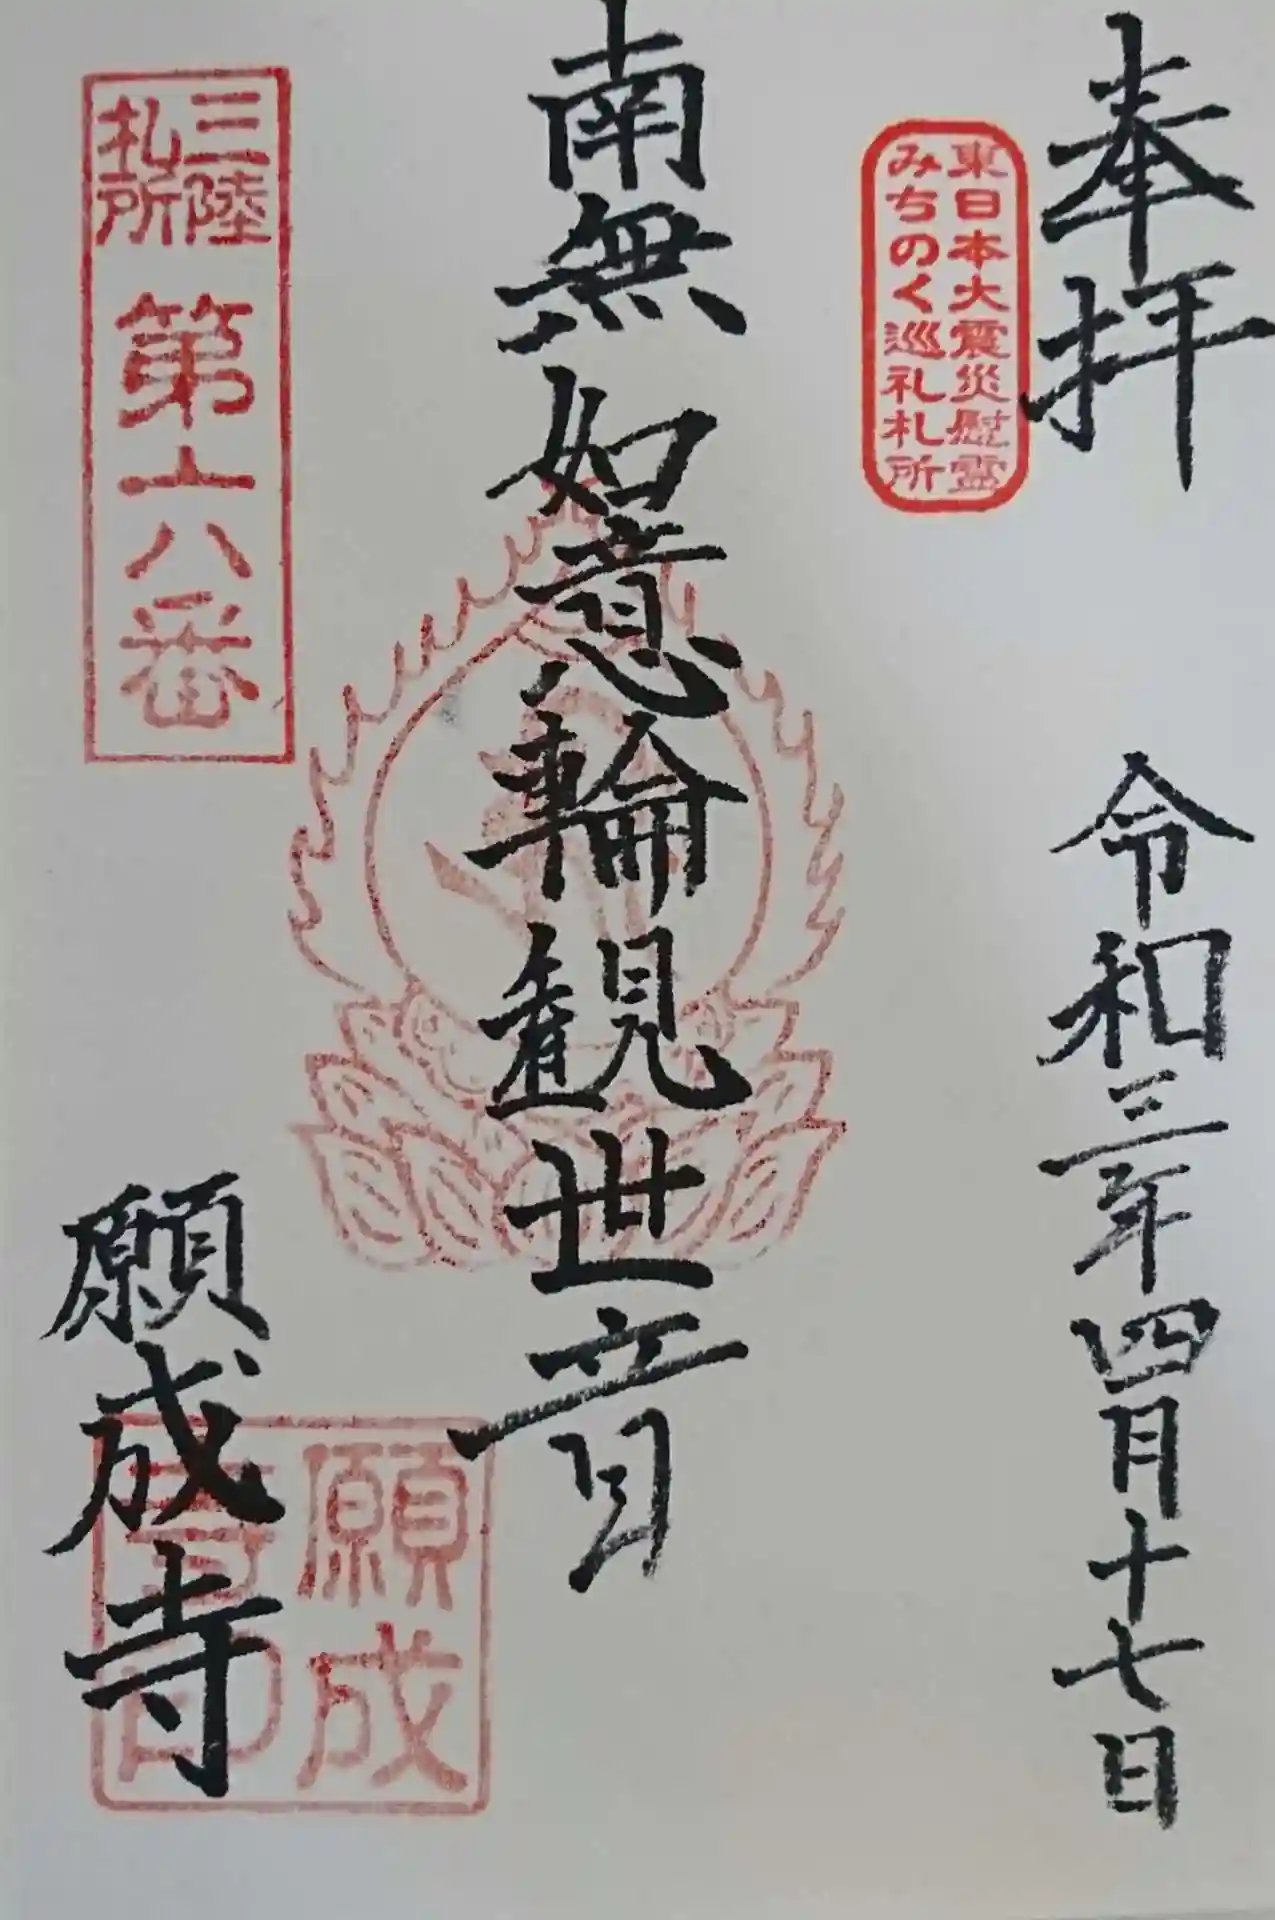 奉拝
令和三年四月十七日
東日本大震災慰霊
みちのく巡礼札所
南無如意輪観世音
三陸
札所
第六八番
願成寺
願成
寺印